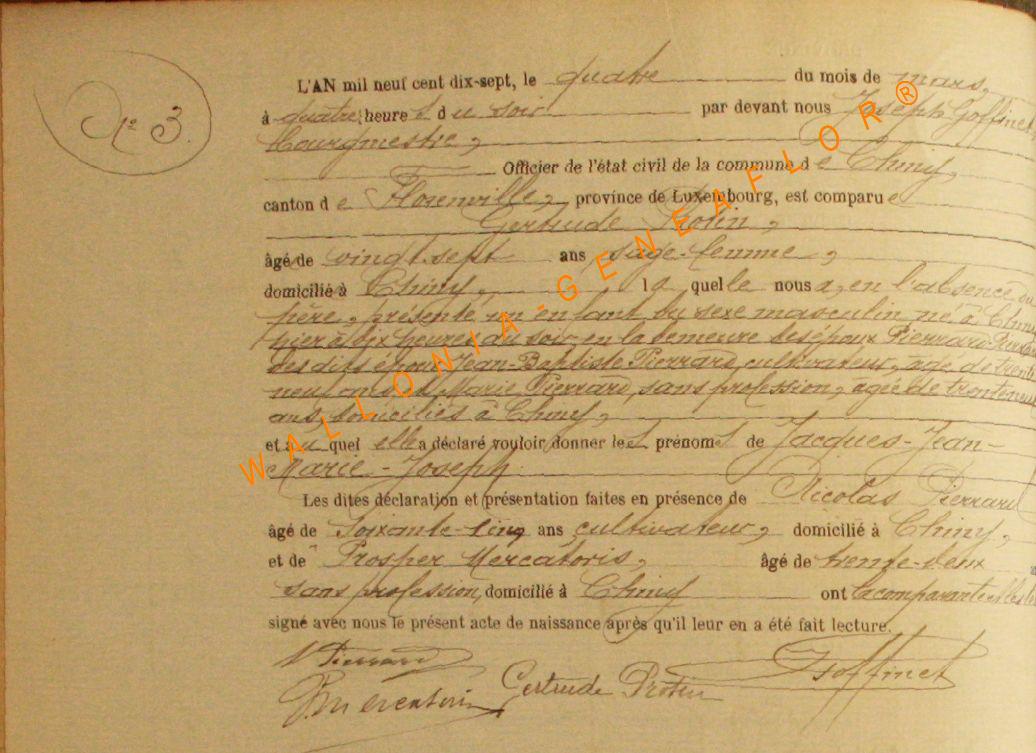 N° 3
L'AN mil neuf cent dix-sept, le quatre du mois de mars,
à quatre heure s du soir par devant nous Joseph Goffinet
bourgmestre,
Officier de l'état civil de la commune de Chiny,
canton de Florenville, province de Luxembourg, est comparue
Gertrude Protin,
âgé de vingt-sept ans sage-femme,
domicilié à Chiny, la quelle nous a, en l'absence du
père, présenté un enfant du sexe masculin né à Chiny
hier à dix heures du soir, en la demeure des époux Pierrard-Pierrard
des dits époux Jean-Baptiste Pierrard, cultivateur, âgé de trente
neuf ans et Marie Pierrard, sans profession, âgée de trenteneuf
ans, domiciliés à Chiny,
et au quel elle a déclaré vouloir donner les prénoms de Jacques-Jean-
Marie-Joseph.
Les dites déclaration et présentation faites en présence de Nicolas Pierrard
âgé de soixante-cinq ans, cultivateur, domicilié à Chiny,
et de Prosper Mercatoris, âgé de trente-deux
sans profession, domicilié à Chiny ont la comparante et les
signé avec nous le présent acte de naissance après qu'il leur en a été fait lecture.
N Pierrard
P. Mercatoris Gertrude Protin J Goffinet
WALLONIA-GENEAFLOR®